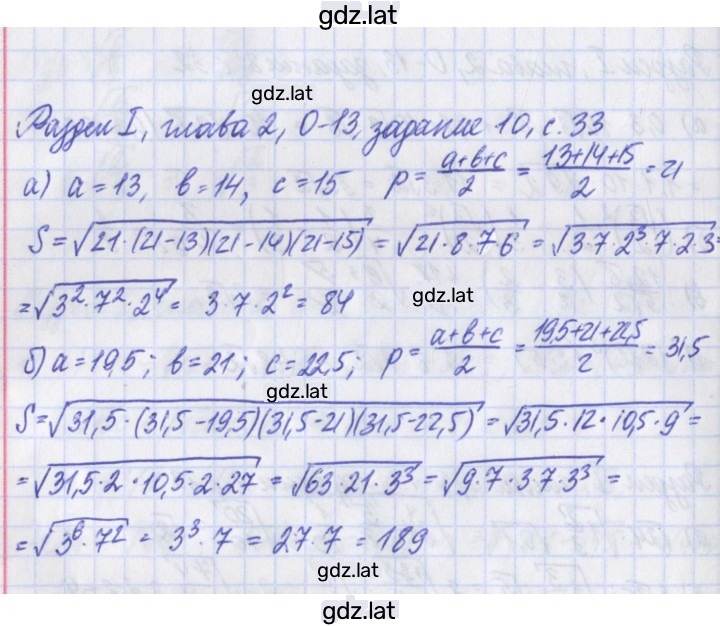 gdz.lat
gdz.lat
Раздел I, глава 2, О-13, задание 10, с. 33
а) a=13, b=14, c=15 p = (a+b+c)/2 = (13+14+15)/2 = 21
S = √(21·(21-13)(21-14)(21-15)) = √(21·8·7·6) = √(3·7·2³·7·2·3) =
= √(3²·7²·2⁴) = 3·7·2² = 84
gdz.lat
б) a=19,5; b=21; c=22,5; p = (a+b+c)/2 = (19,5+21+22,5)/2 = 31,5
gdz.lat
S = √(31,5·(31,5-19,5)(31,5-21)(31,5-22,5)) = √(31,5·12·10,5·9) =
= √(31,5·2·10,5·2·27) = √(63·21·3³) = √(9·7·3·7·3³) =
= √(3⁶·7²) = 3³·7 = 27·7 = 189
gdz.lat
gdz.lat